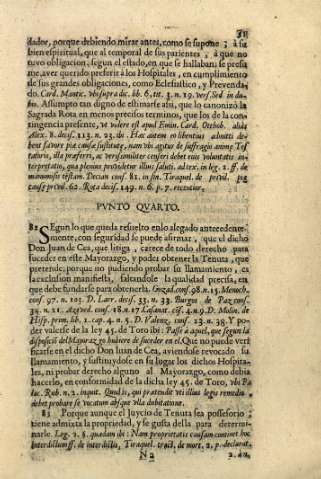 dador, porque debiendo mirar antes, como se supone; à su
bien espiritual, que al temporal de sus parientes, à que no
tuvo obligacion, segun el estado, en que se hallaba, se presu
me, aver querido preferir à los Hospitales, en cumplimiento
de sus grandes obligaciones, como Eclesiastico, y Prevenda-
do. Card. Mant. ubi supra dic. lib. 6. tit. 3. n. 19. vers. Sed in du-
bio. Assumpto tan digno de estimarse assi, que lo canonizò la
Sagrada Rota en menos precisos terminos, que los de la con-
tingencia presente, ut videre est apud Emin. Card. Otthob. alias
Alex. 8. decis. 113. n. 23. ibi: Hæc autem eo libentius admitti de-
bent favore piæ causæ, nam vbi agitur de suffragio animæ Tes
tatoris, illa præferri, ac verisimiliter censeri debet eius voluntatis in-
terpretatio, quæ plenius providetur illius saluti.
manumisis testam. Decian. conf. 81. in fin. Tiraquel. de privil. piæ
causæ privil. 62. Rota decis. 149. n. 6. p. 7. recentior.
PVNTO QVARTO.
82 Segun lo que queda resuelto en lo alegado antecedente-
mente, con seguridad se puede afirmar, que el dicho
Don Juan de Cea, que litiga, carece de todo derecho para
suceder en este Mayorazgo, y poder obtener la Tenuta, que
pretende; porque no pudiendo probar su llamamiento, es
la exclusion manifiesta, faltandole la qualidad precisa, en
que debe fundarse para obtenerla. Gonzal. conf. 98. n. 15. Menoch.
conf. 97. n. 103. D. Larr. decis. 33. n. 33. Burgos de Paz conf.
34. n. 21. Azeved. conf. 18. n. 17. D. Molin. de
Hisp. prim. lib. 1. cap. 4. n. 5. D. Valenz. conf. 23. n. 38. Y po-
der valerse de la ley 45. de Toro ibi: Passe à aquel, que segun la
disposiciõ del Mayorazgo huviere de suceder en el. Que no puede veri
ficarse en el dicho Don Juan de Cea, aviendose revocado su
llamamiento, y sustituydose en su lugar los dichos Hospita-
les, ni probar derecho alguno al Mayorazgo, como debia
hacerlo, en conformidad de la dicha ley 45. de Toro, ubi Pa
lac. Rub. n. 2. inquit. Quod is, qui prætendit uti illius legis remedio,
debet probare se vocatum absque ulla dubitatione.
83 Porque aunque el Juycio de Tenuta sea possesorio
tiene admixta la propriedad, y se gusta della para determi-
narle. Leg. 2. §. quædam ibi: Nam proprietatis causam continet hoc
interdictum ff. de interdictis, Tiraquel. tract. de mort. 2. p. declarat.
N 2